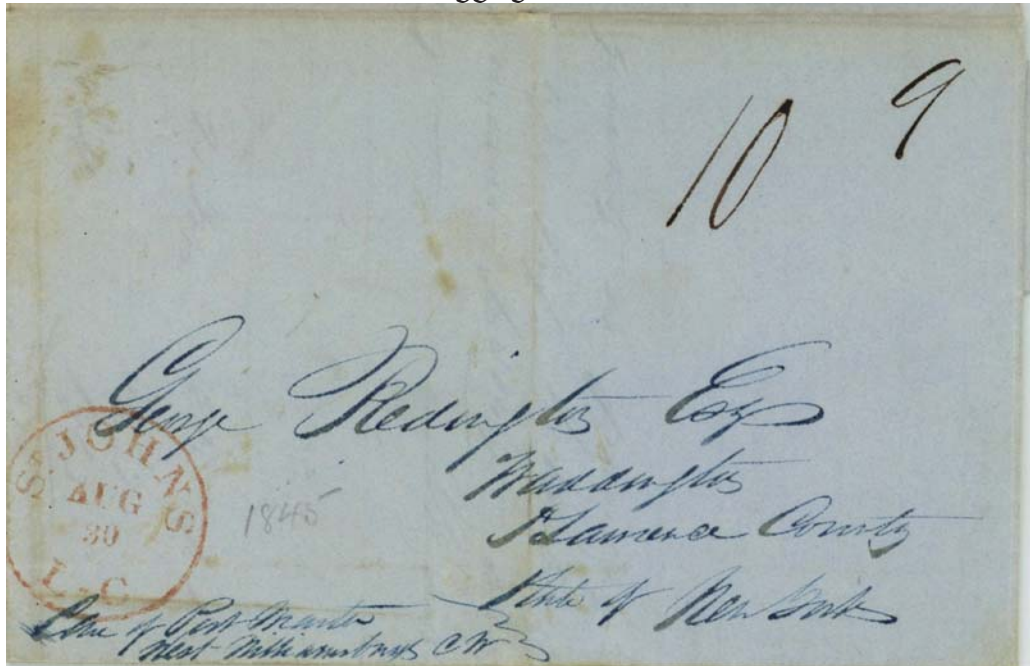 10 9
George Redington Esqr
Waddington
St Lawrence County
State of New York
ST. JOHNS
AUG
30
L.C
1845
Care of Post Master
West Williamsburgh C W